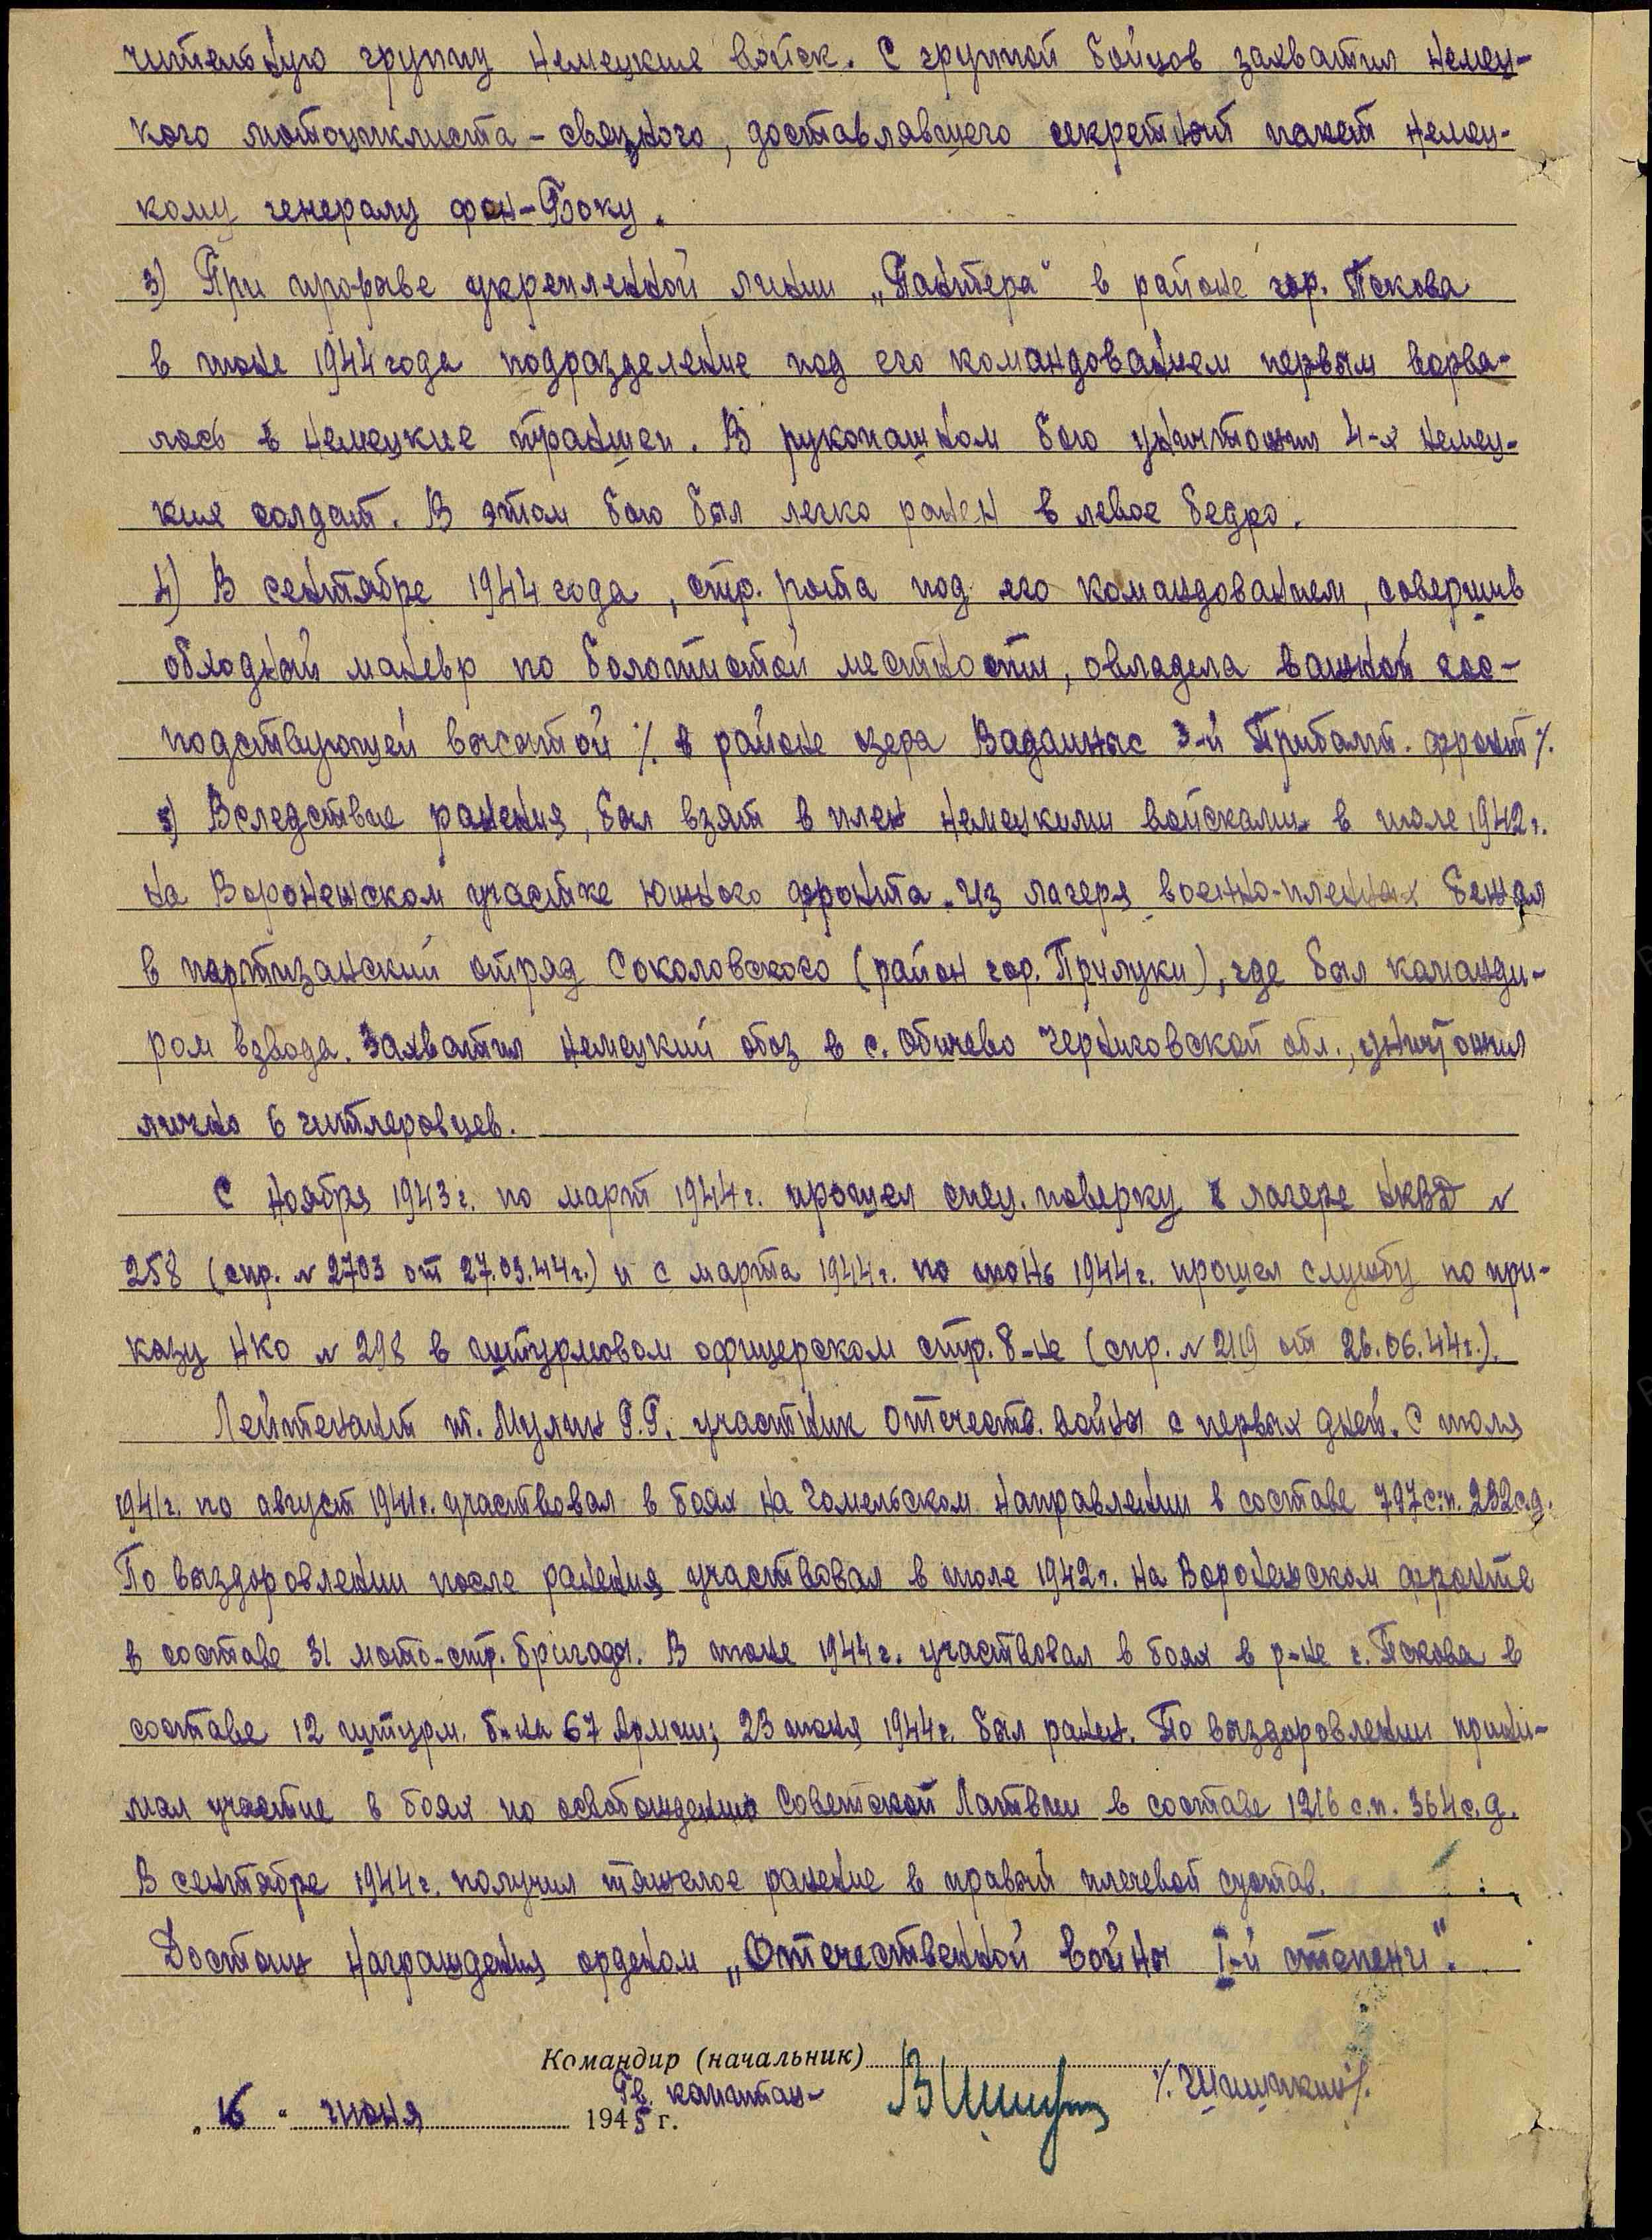 чительную группу немецких войск. С группой бойцов захватил немец-
кого мотоциклиста - связного, доставлявшего секретный пакет немец-
кому генералу фон-Боку.
3) При прорыве укрепленной линии „Пантера" в районе гор. Пскова
в июне 1944 года подразделение под его командованием первым ворва-
лось в немецкие траншеи. В рукопашном бою уничтожил 4-х немец-
ких солдат. В этом бою был легко ранен в левое бедро.
4) В сентябре 1944 года, стр. рота под его командованием, совершив
обходный маневр по болотистой местности, овладела важной гос-
подствующей высотой /. в районе озера Вадайныс 3-й Прибалт. фронт/.
5) Вследствие ранения, был взят в плен немецкими войсками в июле 1942 г.
на Воронежском участке Южного фронта. Из лагеря военно-пленных бежал
в партизанский отряд Соколовского (район гор. Прилуки), где был команди-
ром взвода. Захватил немецкий обоз в с. Обичево Черниговской обл., уничтожил
лично 6 гитлеровцев.
С ноября 1943 г. по март 1944 г. прошел спец. поверку в лагере НКВД №
258 (спр. № 2703 от 27.03.44 г.) и с марта 1944 г. по июнь 1944 г. прошел службу по при-
казу НКО № 298 в штурмовом офицерском стр. б-не (спр. № 2119 от 26.06.44 г.).
Лейтенант т. Мулин Г.Г. участник Отечеств. войны с первых дней. С июля
1941 г. по август 1941 г. участвовал в боях на Гомельском направлении в составе 797 с.п. 232 с.д.
По выздоровлении после ранения участвовал в июле 1942 г. на Воронежском фронте
в составе 31 мото-стр. бригады. В июне 1944 г. участвовал в боях в р-не г. Пскова в
составе 12 штурм. б-на 67 Армии; 23 июня 1944 г. был ранен. По выздоровлении прини-
мал участие в боях по освобождению Советской Латвии в составе 1216 с.п. 364 с.д.
В сентябре 1944 г. получил тяжелое ранение в правый плечевой сустав.
Достоин награждения орденом „Отечественной войны I-й степени".
Командир (начальник)
Гв. капитан- /. Шишкин/.
„16" июня 1945 г.